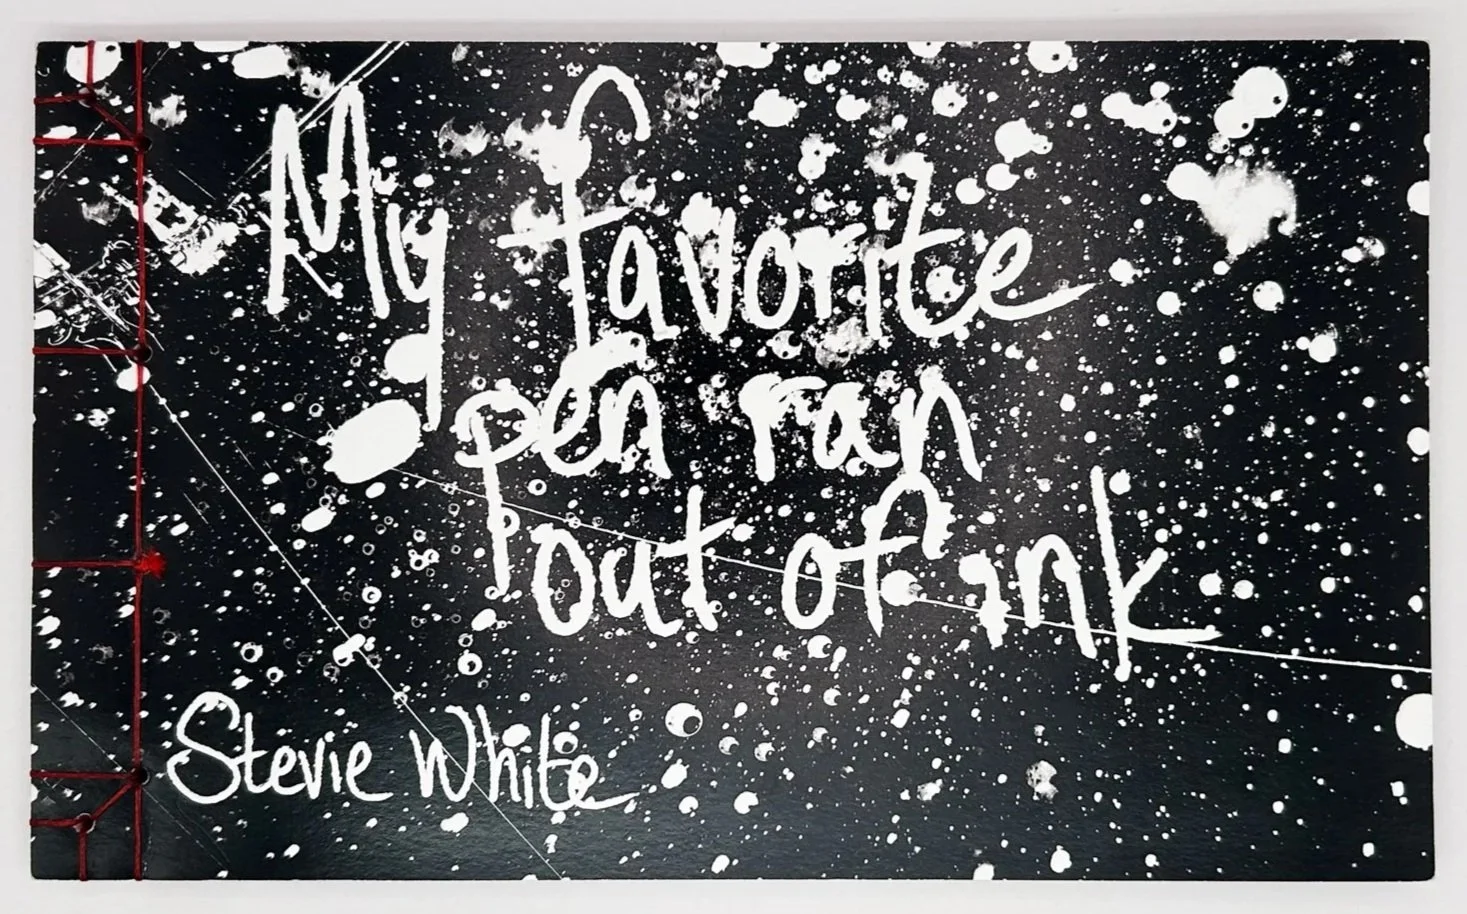 My favorite
pen ran
out of ink
Stevie White